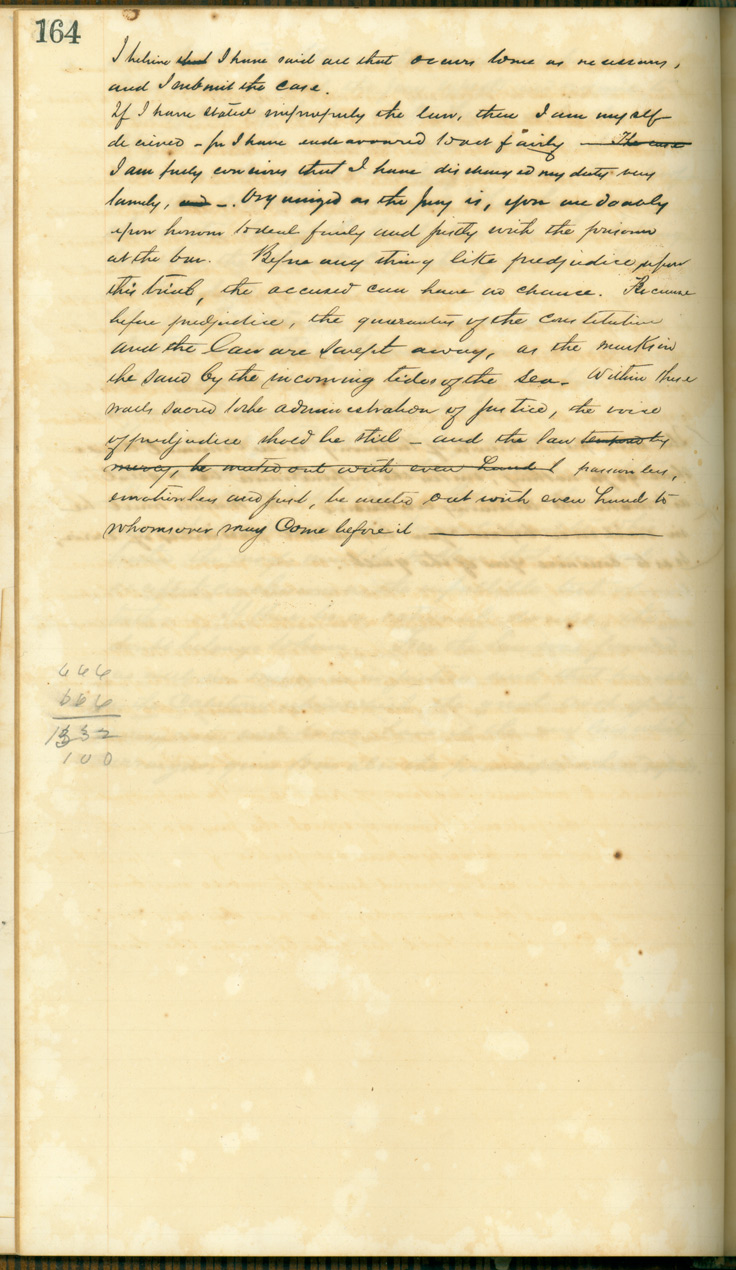 164
I believe that I have said all that occurs to me as necessary,
and I submit the case.
If I have stated improperly the law, then I am myself
deceived - for I have endeavoured to act fairly - The case
I am fully convinced that I have discharged my duty very
lamely, and -. Organized as the jury is, you are doubly
upon honor to deal fairly and justly with the prisoner
at the bar. Before any thing like predjudice, upon
this trial, the accused can have no chance. Because
before predjudice, the guaranties of the Constitution
and the Law are swept away, as the marks in
the sand by the incoming tides of the sea. Within these
walls sacred to the administration of Justice, the voice
of predjudice should be still - and the law tempered by
mercy, be meted out with even hand passionless,
emotionless and just, be meeted out with even hand to
whomsover may Come before it
666
666
1332
100